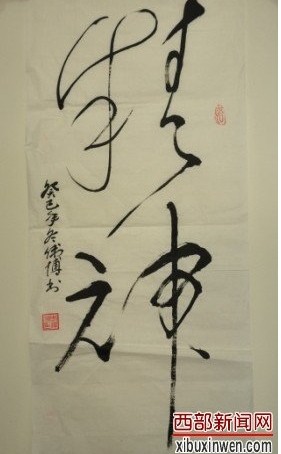 精神
癸巳年冬伟博书
西部新闻网
xibuxinwen.com